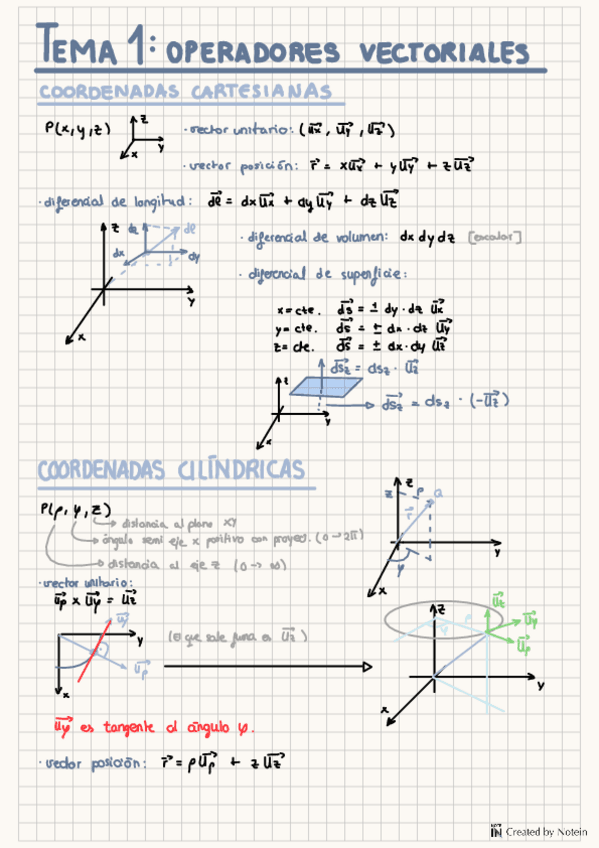 TEMA 1: OPERADORES VECTORIALES
COORDENADAS CARTESIANAS
P(x,y,z) z y x · vector unitario: (u⃗x, u⃗y, u⃗z)
· vector posición: r⃗ = xu⃗x + yu⃗y + zu⃗z
· diferencial de longitud: dl⃗ = dxu⃗x + dyu⃗y + dzu⃗z
z dz dl⃗ dx dy y x
· diferencial de volumen: dx dy dz [escalar]
· diferencial de superficie:
x = cte. ds⃗ = ± dy · dz u⃗x
y = cte. ds⃗ = ± dx · dz u⃗y
z = cte. ds⃗ = ± dx · dy u⃗z
ds⃗z = dsz · u⃗z
z y x
ds⃗z = dsz · (-u⃗z)
COORDENADAS CILÍNDRICAS
P(ρ, φ, z)
distancia al plano XY
ángulo semi eje x positivo con proyec. (0→2π)
distancia al eje z (0→∞)
z ρ r⃗ y φ x
· vector unitario:
u⃗ρ x u⃗φ = u⃗z
u⃗φ y u⃗ρ x
(el que sale fuera es u⃗z)
z u⃗z u⃗φ u⃗ρ y x
u⃗φ es tangente al ángulo φ.
· vector posición: r⃗ = ρu⃗ρ + zu⃗z
NOTE IN Created by Notein